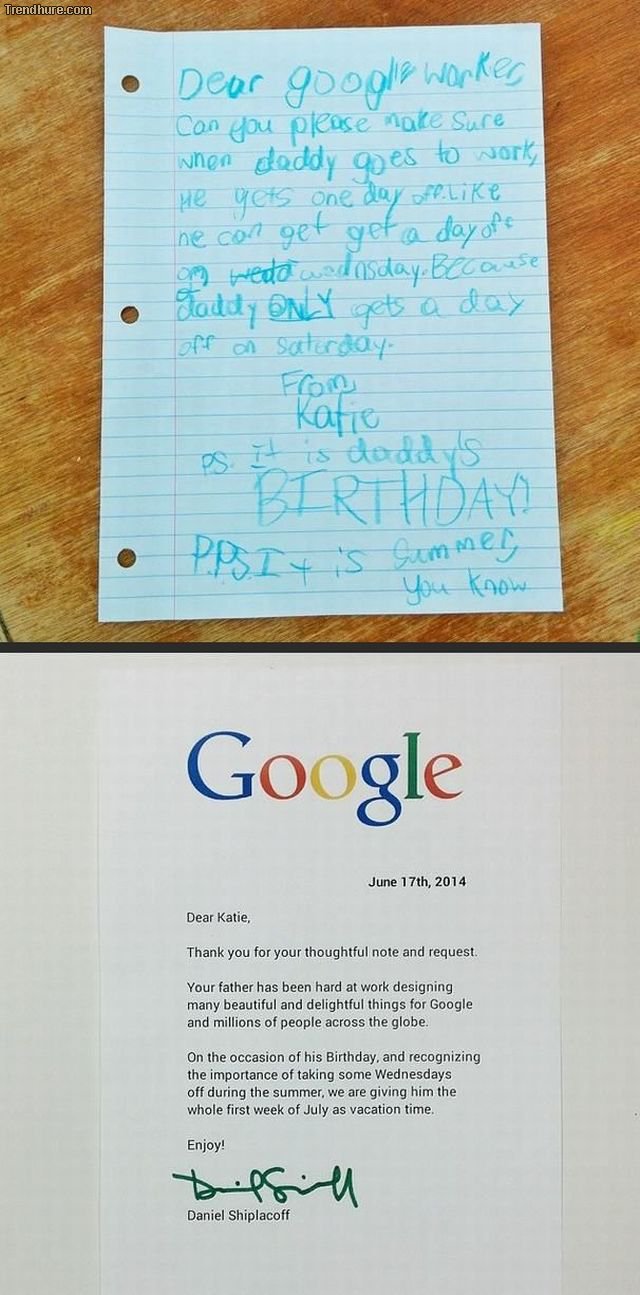 Trendhure.com
Dear google worker,
Can you please make sure
when daddy goes to work,
He gets one day off. Like
he can get get a day off
on wedd wednsday. Because
daddy ONLY gets a day
off on Saturday.
From,
Katie
P.S. It is daddy's
BIRTHDAY!
P.P.S. It is summer,
you know
Google
June 17th, 2014
Dear Katie,
Thank you for your thoughtful note and request.
Your father has been hard at work designing
many beautiful and delightful things for Google
and millions of people across the globe.
On the occasion of his Birthday, and recognizing
the importance of taking some Wednesdays
off during the summer, we are giving him the
whole first week of July as vacation time.
Enjoy!
Daniel Shiplacoff